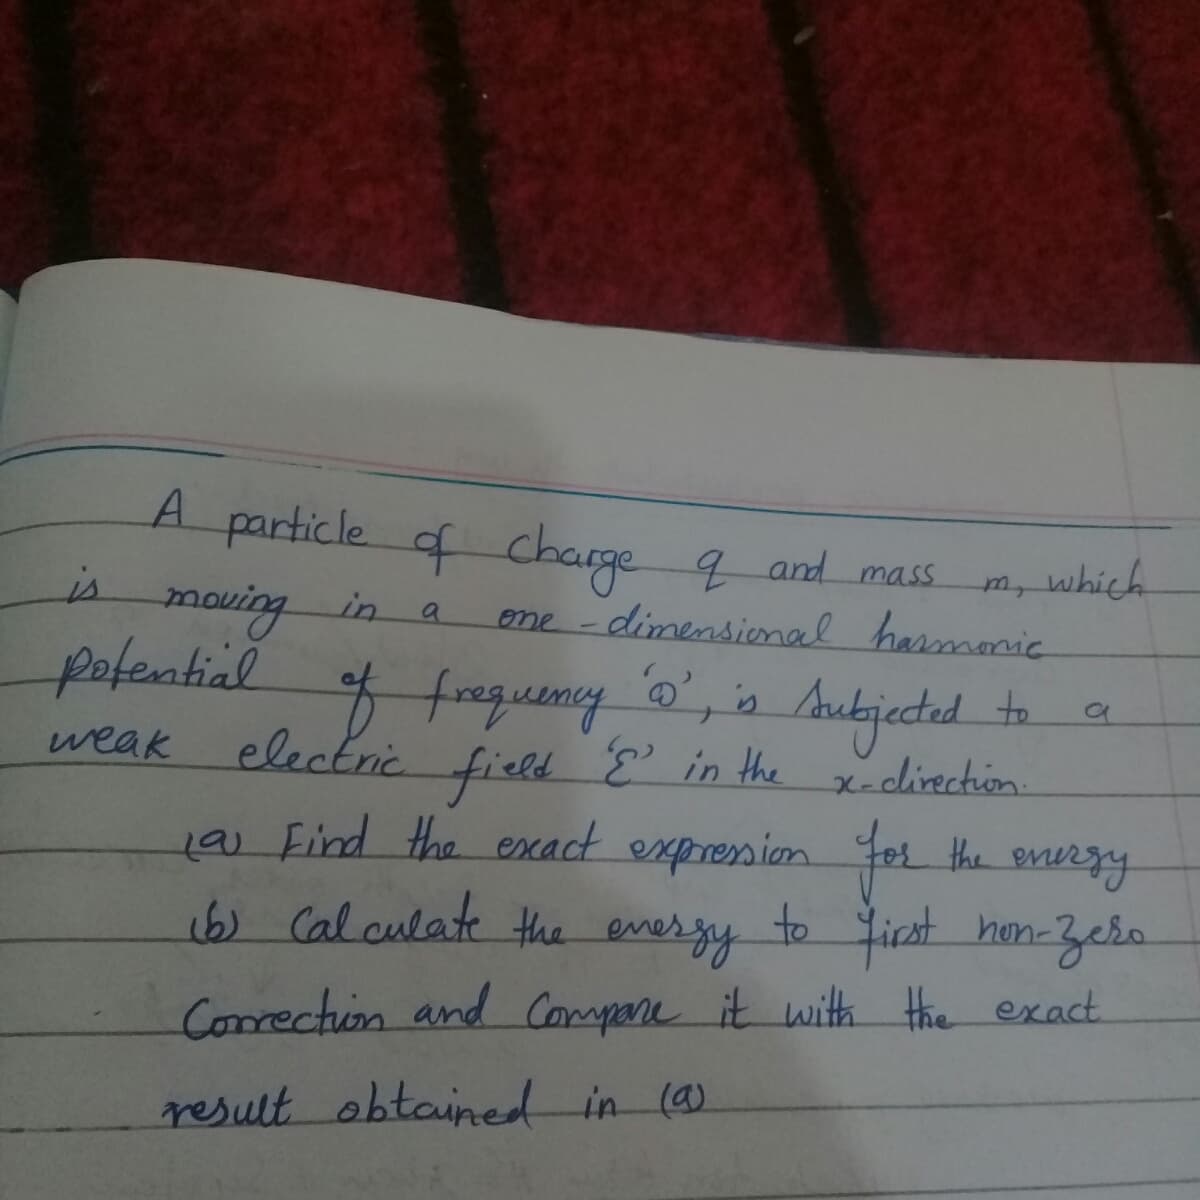 A particle of charge q and mass m, which
is moving in a one-dimensional harmonic
potential of frequency 'ω', is subjected to a
weak electric field 'ℰ' in the x-direction.
(a) Find the exact expression for the energy
(b) Calculate the energy to first non-zero
Correction and Compare it with the exact
result obtained in (a)